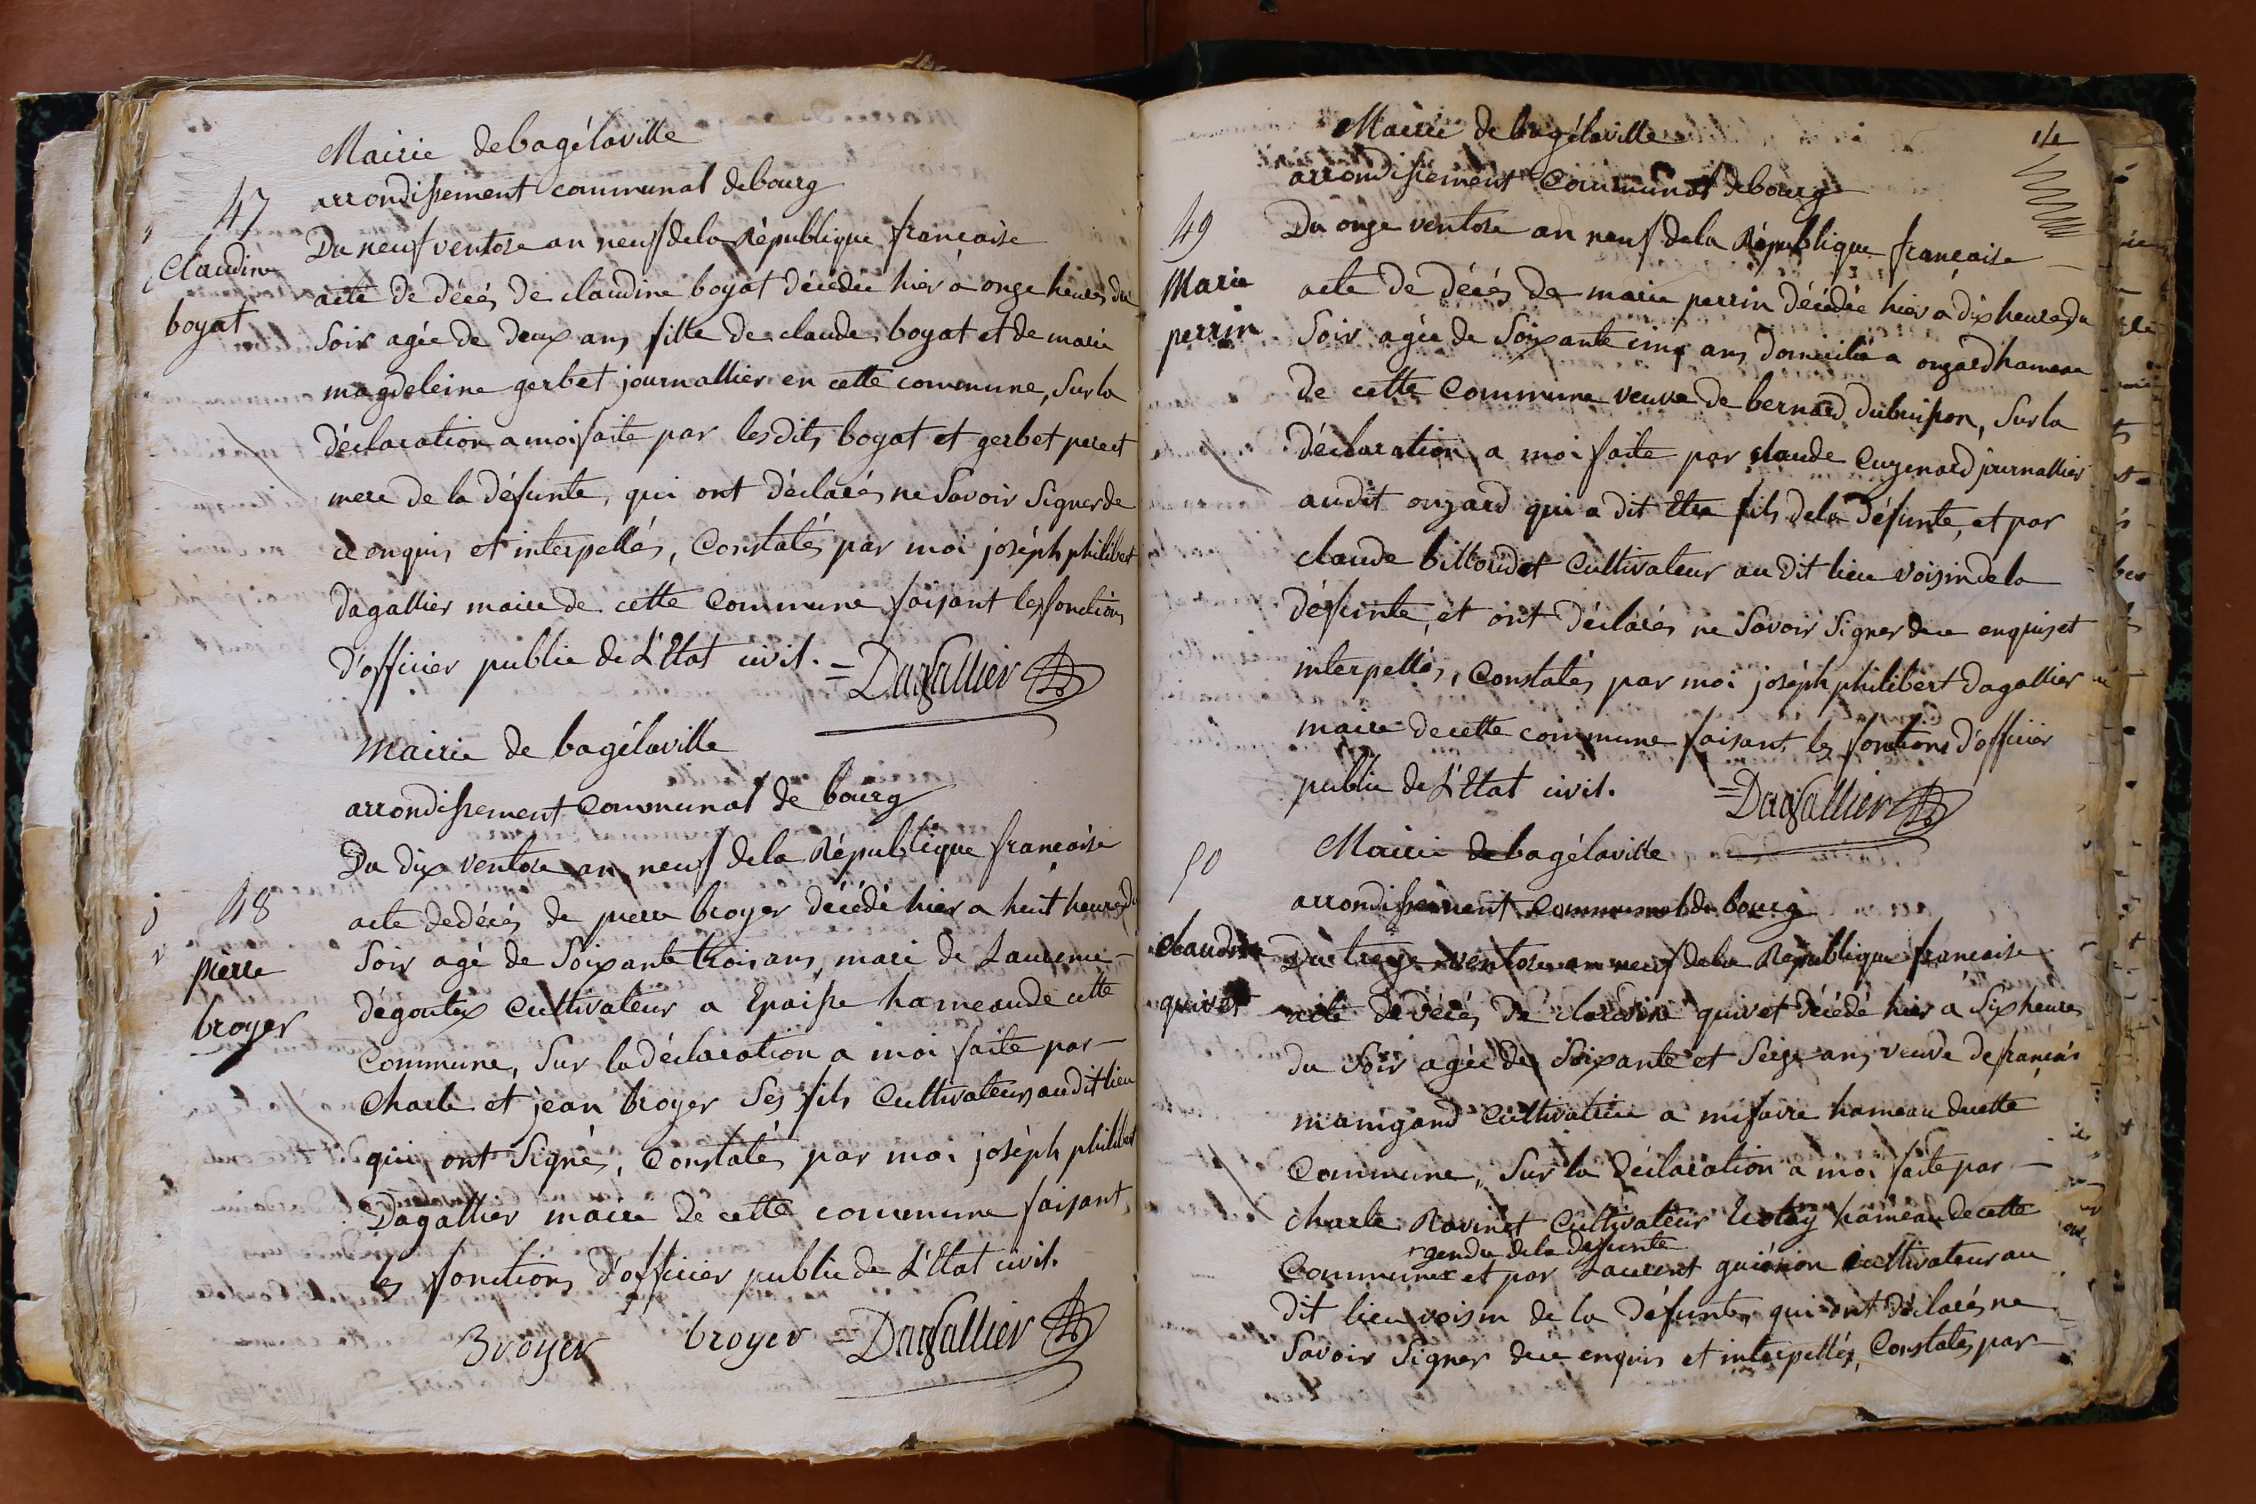 Mairie de bagélaville
arrondissement communal de bourg
47
Du neuf ventose an neuf de la République francaise
claudine
boyat
acte de décés de claudine boyat décédée hier a onze heures du
soir agée de deux ans fille de claude boyat et de marie
magdeleine gerbet journallier en cette commune, sur la
déclaration a moi faite par lesdits boyat et gerbet pere et
mere de la défunte, qui ont déclarés ne savoir signer de
ce enquis et interpellés, Constatés par moi joséph philibert
dagallier maire de cette Commune faisant les fonctions
d'officier public de L'Etat civil. = Dagallier
Mairie de bagélaville
arrondissement Communal de bourg
Du dix ventose an neuf de la République francaise
48
pierre
broyer
acte de décés de pierre broyer décédé hier a huit heures du
soir agé de soixante trois ans mari de Laurence
dégoutex Cultivateur a Epaisse hameau de cette
Commune, sur la déclaration a moi faite par
Charle et jean broyer ses fils Cultivateurs au dit lieu
qui ont signés, Constatés par moi joséph philibert
Dagallier maire de cette commune faisant
les fonctions d'officier public de L'Etat civil.
Broyer broyer = Dagallier
14
Mairie de bagélaville
arrondissement Communal de bourg
49
Marie
perrin
Du onze ventose an neuf de la République francaise
acte de décés de marie perrin décédée hier a dix heures du
soir agée de soixante cinq ans domicilié a onzard hameau
de cette Commune veuve de bernard dubuisson, sur la
déclaration a moi faite par claude Cuzenard journallier
audit onzard qui a dit Etre fils de la défunte, et par
claude billoudet Cultivateur au dit lieu voisin de la
défunte, et ont déclarés ne savoir signer de ce enquis et
interpellés, Constatés par moi joséph philibert dagallier
maire de cette commune faisant les fontions d'officier
public de L'Etat civil. = Dagallier
50
Mairie de bagélaville
arrondissement Communal de bourg
claudine
quivet
Du treize ventose an neuf de la République francaise
acte de décés de claudine quivet décédé hier a six heures
du soir agée de soixante et seize ans veuve de francois
manigand Cultivateur a mifavre hameau de cette
Commune, sur la déclaration a moi faite par
charle Ravinet Cultivateur hameau de cette
gendre de la defunte
Commune et par Laurent cultivateur au
dit lieu voisin de la défunte, qui ont déclarés ne
savoir signer de ce enquis et interpellés, Constatés par